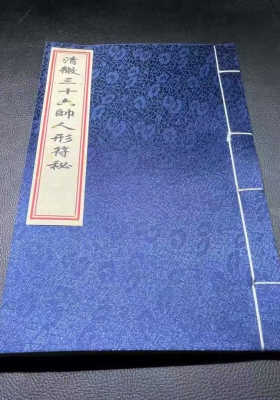 清微三十六帥人形符秘